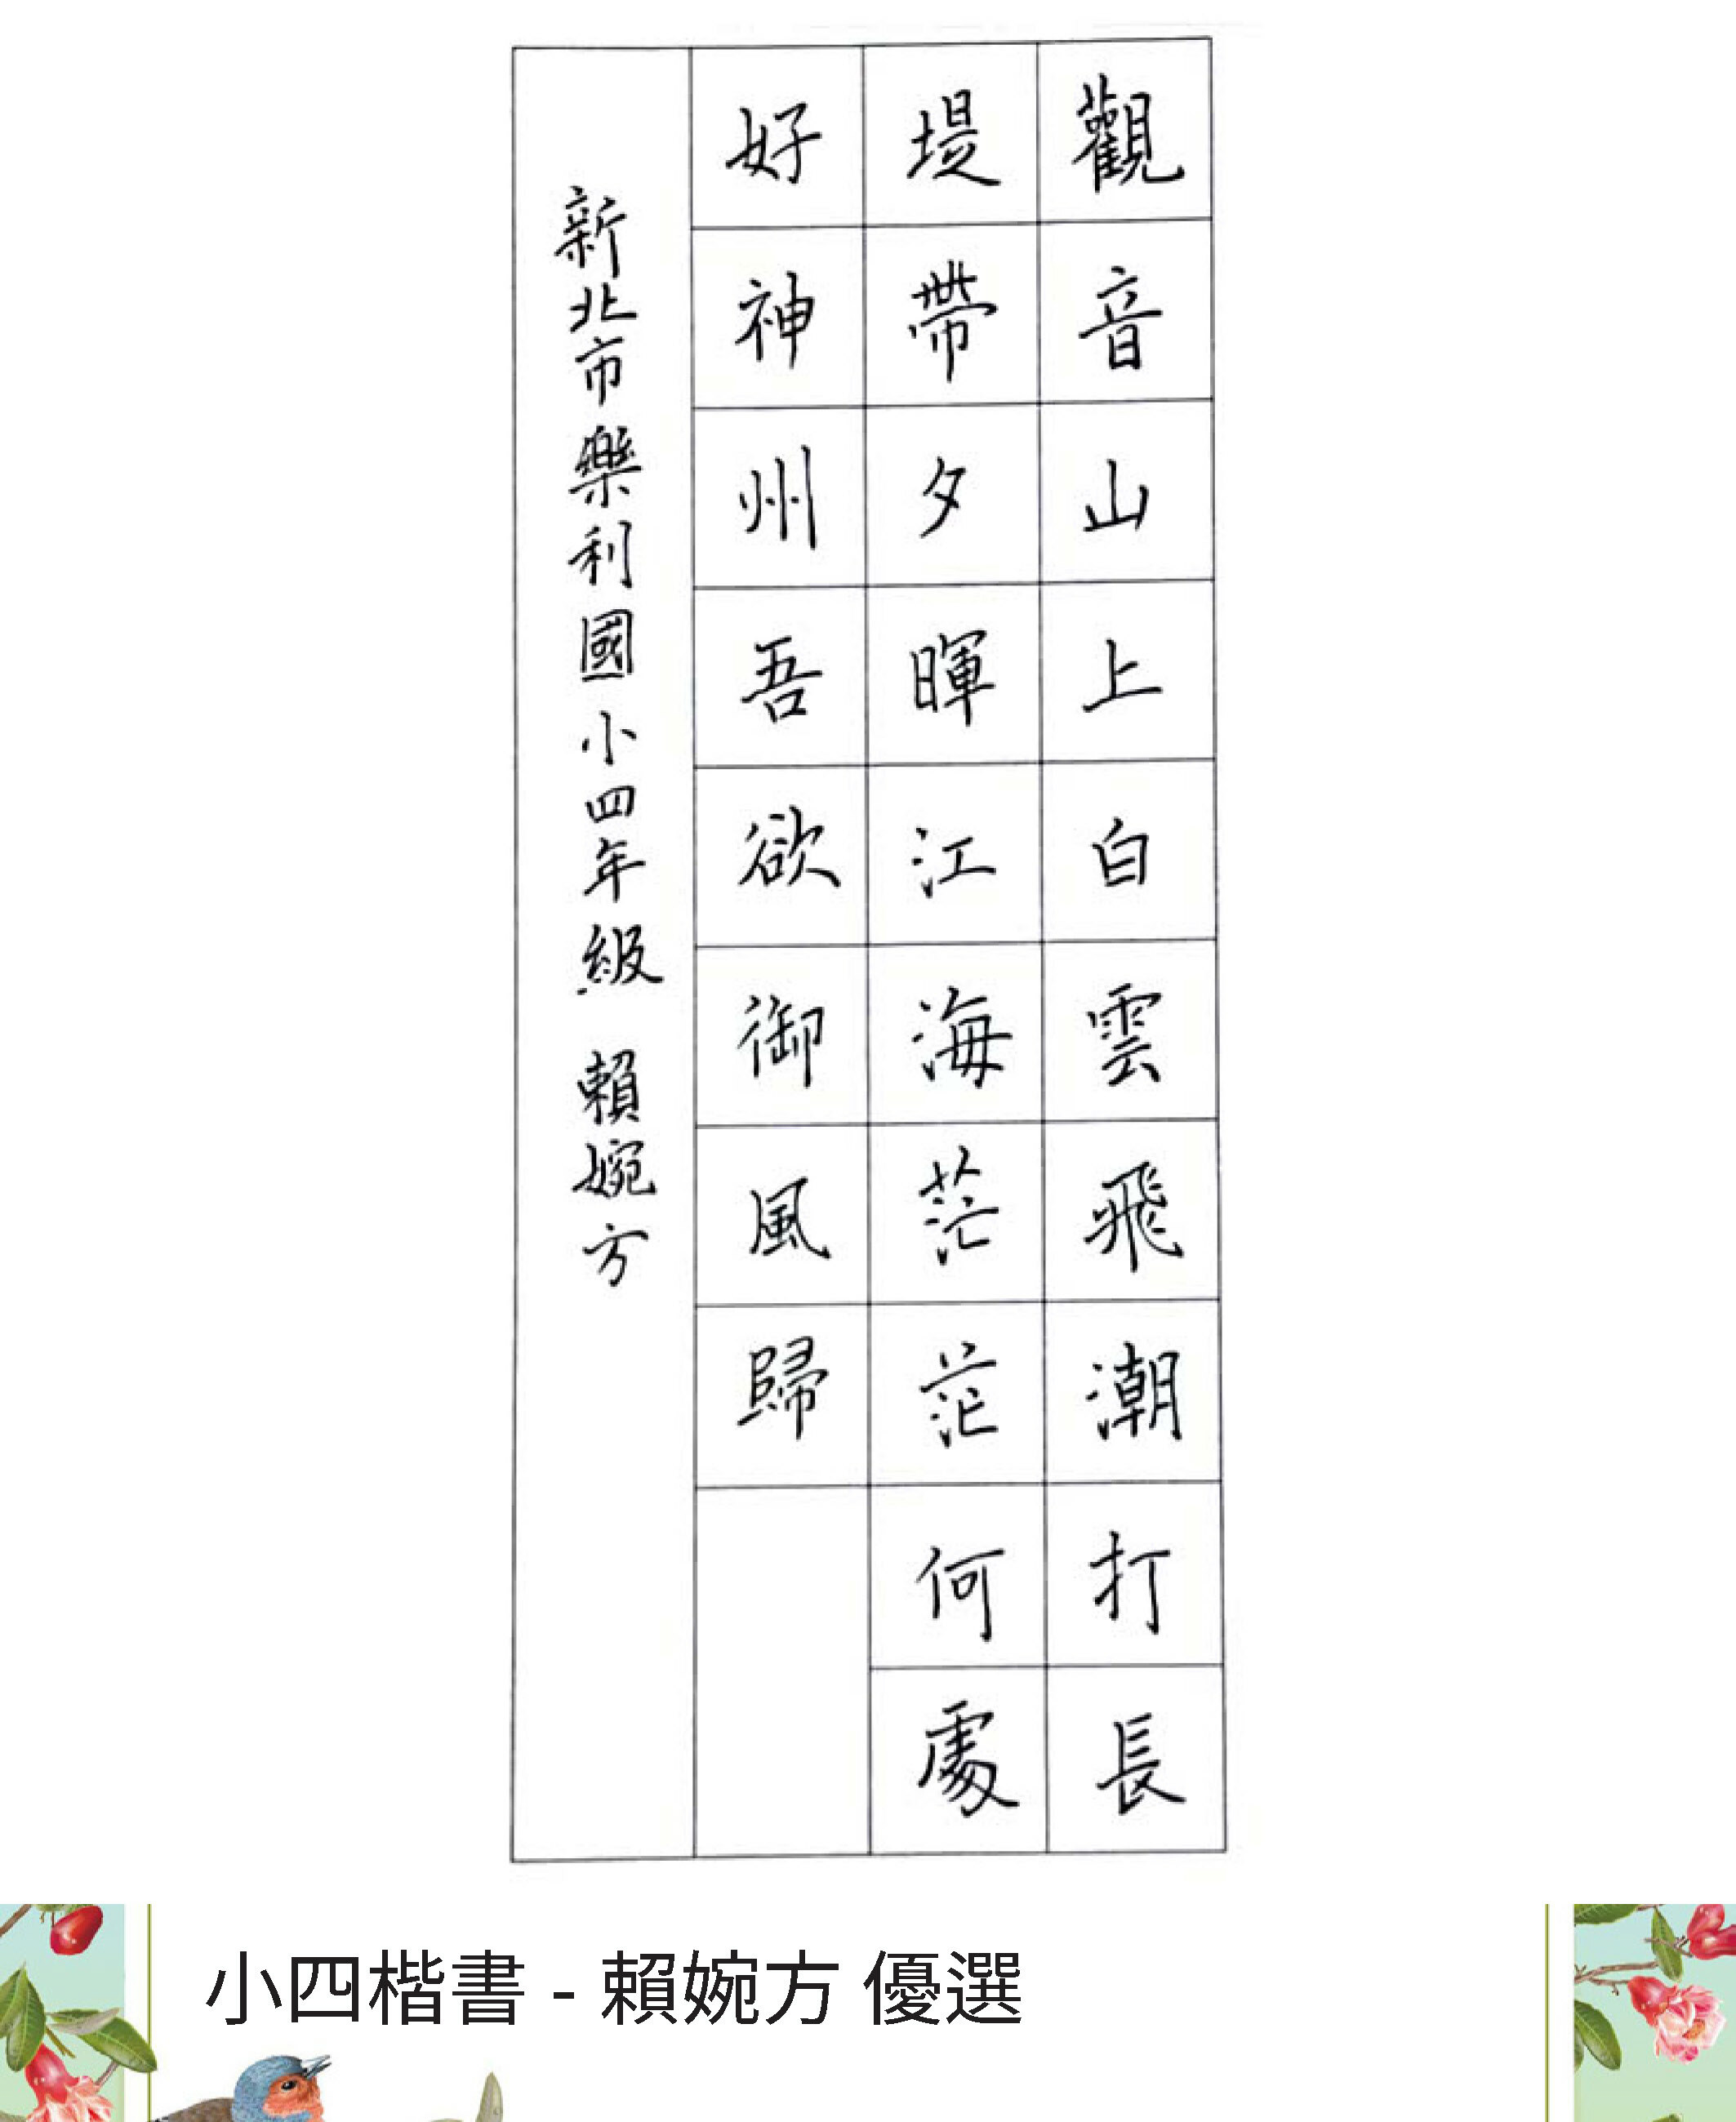 觀音山上白雲飛潮打長
堤帶夕暉江海茫茫何處
好神州吾欲御風歸
新北市樂利國小四年級 賴婉方
小四楷書 - 賴婉方 優選